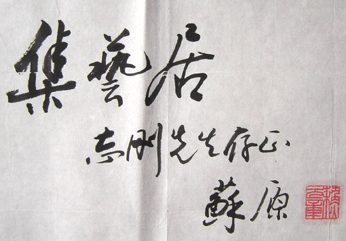 集藝居
志刚先生存正
蘇原